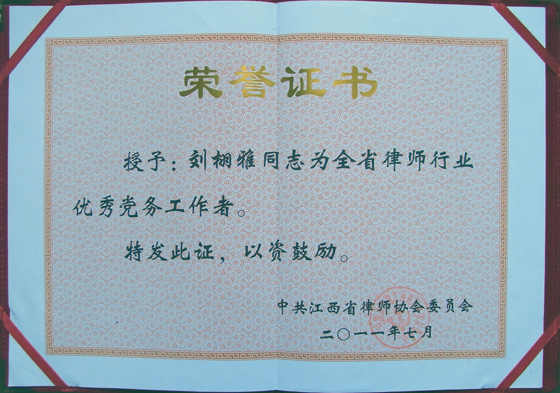 荣誉证书
授予：刘栩雅同志为全省律师行业
优秀党务工作者。
特发此证，以资鼓励。
中共江西省律师协会委员会
二〇一一年七月